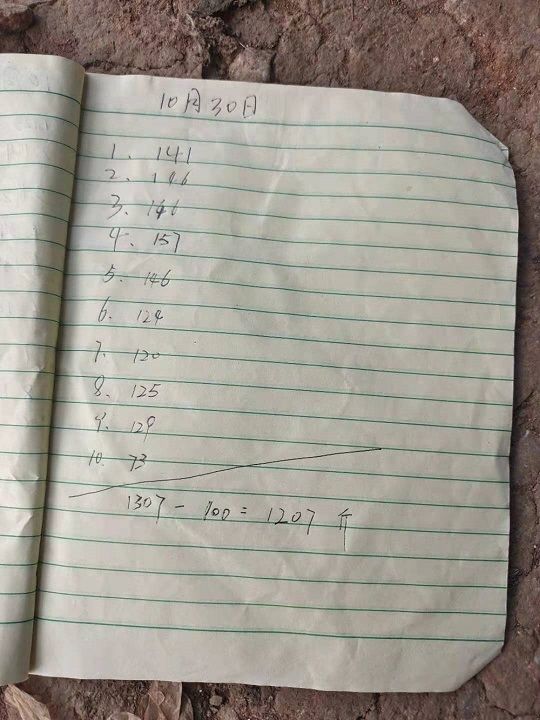 10月30日
1. 141
2. 146
3. 146
4. 157
5. 146
6. 124
7. 120
8. 125
9. 129
10. 73
1307 - 100 = 1207 斤